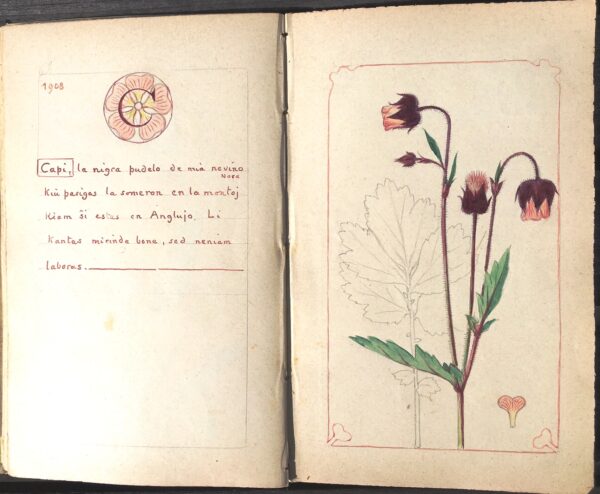 1908
C
Capi, la nigra pudelo de mia nevino
Nora
kiu pasigas la someron en la montoj
kiam ŝi estas en Anglujo. Li
kantas mirinde bone, sed neniam
laboras.